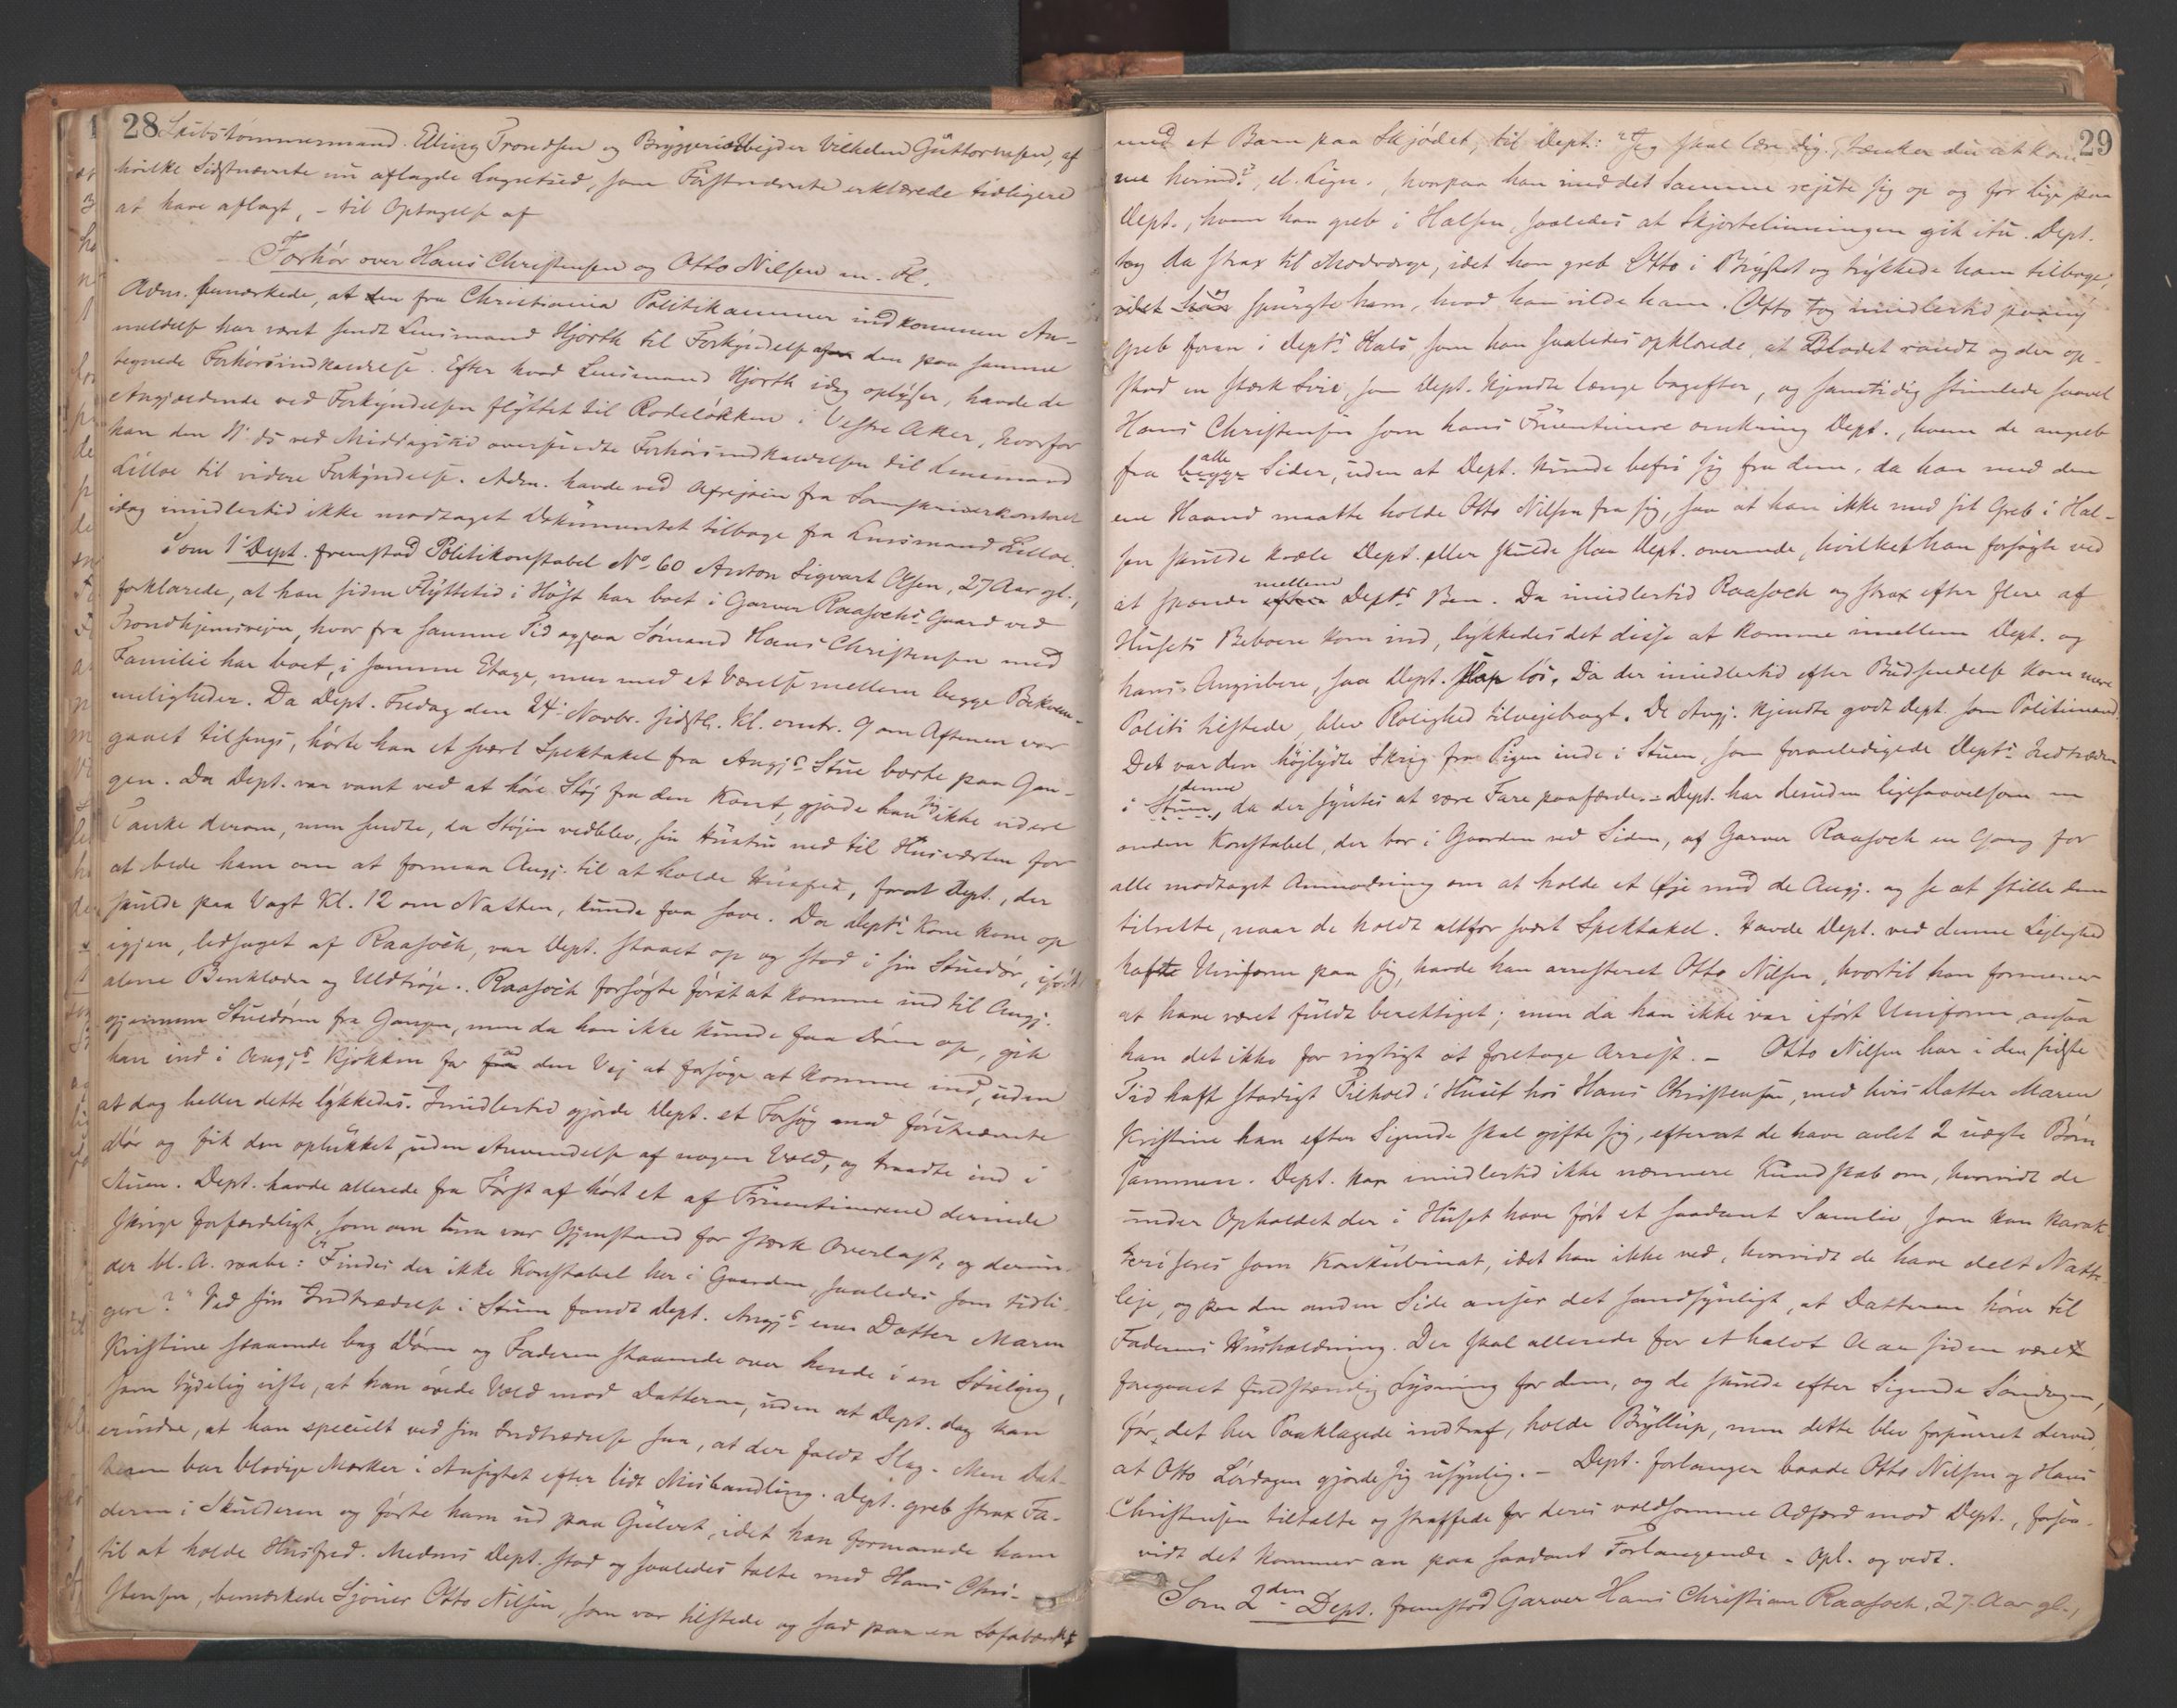 28
Skibstømmermand Elling Trondsen og Bryggeriarbejder Vilhelm Guttormsen, af
hvilke Sidstnævnte nu aflagde Lagretsed, som Førstnævnte erklærede tidligere
at have aflagt, - til Optagelse af
Forhør over Hans Christensen og Otto Nilsen m. Fl.
Adm. bemærkede, at den fra Christiania Politikammer indkommen An-
meldelse har været sendt Lensmand Hjorth til Forkyndelse af den paa samme
tegnede Forhørsindkaldelse. Efter hvad Lensmand Hjorth idag oplyser, havde de
Angjældende ved Forkyndelsen flyttet til Rodeløkken i Vestre Aker, hvorfor
han den 11' ds ved Middagstid oversendte Forhørsindkaldelsen til Lensmand
Lilloe til videre Forkyndelse. Adm. havde ved Afrejsen fra Sorenskriverkontoret
idag imidlertid ikke modtaget Dokumentet tilbage fra Lensmand Lilloe.
Som 1' Dept. fremstod Politikonstabel No 60 Anton Sigvart Olsen, 27 Aar gl.,
forklarede, at han siden Flyttetid i Høst har boet i Garver Raasochs Gaard ved
Trondhjemsvejen, hvor fra samme Tid ogsaa Sømand Hans Christensen med
Familie har boet, i samme Etage, men med et Værelse mellem begge Bekvem-
meligheder. Da Dept. Fredag den 24' Novbr. sidstl. Kl. omtr. 9 om Aftenen var
gaaet tilsengs, hørte han et svært Spektakel fra Angjs Stue borte paa Gan-
gen. Da Dept. var vant ved at høre Støj fra den Kant, gjorde han sig ikke videre
Tanke derom, men sendte, da Støjen vedblev, sin Hustru ned til Husværten for
at bede ham om at formaa Angj. til at holde Husfred, forat Dept., der
skulde paa Vagt Kl. 12 om Natten, kunde faa sove. Da Depts Kone kom op
igjen, ledsaget af Raasoch, var Dept. staaet op og stod i sin Stuedør, iført
alene Benklæder og Uldtrøje. Raasoch forsøgte først at komme ind til Angj.
gjennem Stuedøren fra Gangen, men da han ikke kunde faa Døren op, gik
han ind i Angjs Kjøkken for ad den Vej at forsøge at komme ind, uden
at dog heller dette lykkedes. Imidlertid gjorde Dept. et Forsøg med førstnævnte
Dør og fik den oplukket, uden Anvendelse af nogen Vold, og traadte ind i
Stuen. Dept. havde allerede fra Først af hørt et af Fruentimrene derinde
skrige forfærdeligt, som om hun var Gjenstand for stærk Overlast, og derun-
der bl. A. raabe: "Findes der ikke Konstabel her i Gaarden, saaledes som tidli-
gere?" Ved sin Indtrædelse i Stuen fandt Dept. Angjs ene Datter Maren
Kristine staaende bag Døren og Faderen staaende over hende i en Stilling,
som tydelig viste, at han øvede Vold mod Datteren, uden at Dept. dog kan
erindre, at han specielt ved sin Indtrædelse saa, at der faldt Slag. Men Dat-
teren bar blodige Mærker i Ansigtet efter lidt Mishandling. Dept. greb strax Fa-
deren i Skulderen og førte ham ud paa Gulvet, idet han formanede ham
til at holde Husfred. Medens Dept. stod og saaledes talte med Hans Chri-
stensen, bemærkede Sjøner Otto Nilsen, som var tilstede og sad paa en Sofabænk
29
med et Barn paa Skjødet, til Dept.: "Jeg skal lære dig, tænker du at kom-
me herind?", el. Lign., hvorpaa han med det Samme rejste sig op og for lige paa
Dept., hvem han greb i Halsen, saaledes at Skjortelinningen gik itu. Dept.
tog da strax til Modværge, idet han greb Otto i Brystet og trykkede ham tilbage,
idet og spurgte ham, hvad han vilde ham. Otto tog imidlertid paany
Greb foran i Depts Hals, som han saaledes opklorede, at Blodet randt og der op-
stod en stærk Svie, som Dept. kjendte længe bagefter, og samtidig stimlede saavel
Hans Christensen som hans Fruentimre omkring Dept., hvem de angreb
fra alle begge Sider, uden at Dept. kunde befri sig fra dem, da han med den
ene Haand maatte holde Otto Nilsen fra sig, saa at han ikke med sit Greb i Hal-
sen skulde kvæle Dept. eller skulde slaa Dept. overende, hvilket han forsøgte ved
at spænde mellem Depts Ben. Da imidlertid Raasoch og strax efter flere af
Husets Beboere kom ind, lykkedes det disse at komme imellem Dept. og
hans Angribere, saa Dept. slap løs. Da der imidlertid efter Budsendelse kom mere
Politi tilstede, blev Rolighed tilvejebragt. De Angj. kjendte godt Dept. som Politimand.
Det var den højlydte Skrig fra Pigen inde i Stuen, som foranledigede Depts Indtræden
i denne Stuen, da der syntes at være Fare paafærde. - Dept. har desuden ligesaavelsom en
anden Konstabel, der bor i Gaarden ved Siden, af Garver Raasoch en Gang for
alle modtaget Anmodning om at holde et Øje med de Angj. og se at stille dem
tilrette, naar de holdt altfor svært Spektakel. Havde Dept. ved denne Lejlighed
hafte Uniform paa sig, havde han arresteret Otto Nilsen, hvortil han formener
at have været fuldt berettiget; men da han ikke var iført Uniform, ansaa
han det ikke for rigtigt at foretage Arrest. - Otto Nilsen har i den sidste
Tid haft stadigt Tilhold i Huset hos Hans Christensen, med hvis Datter Maren
Kristine han efter Sigende skal gifte sig, efterat de have avlet 2 uægte Børn
sammen. Dept. har imidlertid ikke nærmere Kundskab om, hvorvidt de
under Opholdet der i Huset have ført et saadant Samliv, som kan karak-
teriseres som Konkubinat, idet han ikke ved, hvorvidt de have delt Natte-
leje, og paa den anden Side anser det sandsynligt, at Datteren hører til
Faderens Husholdning. Der skal allerede for et halvt Aar siden være
foregaaet fuldstændig Lysning for dem, og de skulde efter Sigende Søndagen,
før det her Paaklagede indtraf, holde Bryllup, men dette blev forpurret derved,
at Otto Lørdagen gjorde sig usynlig. - Dept. forlanger baade Otto Nilsen og Hans
Christensen tiltalte og straffede for deres voldsomme Adfærd mod Dept., forsaa-
vidt det kommer an paa saadant Forlangende. - Opl. og vedt.
Som 2den Dept. fremstod Garver Hans Christian Raasoch, 27 Aar gl.,